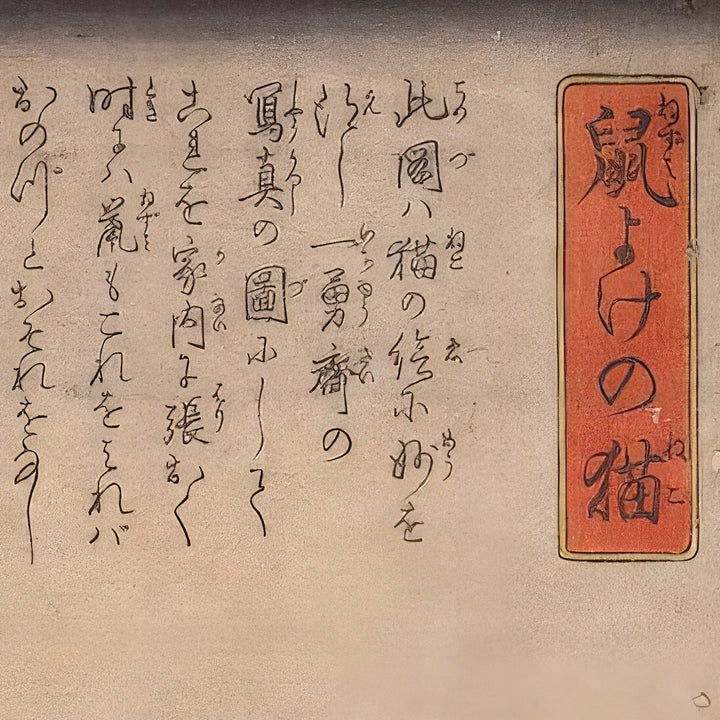 鼠よけの猫
此圖ハ猫の絵に妙を
得し一勇齋の
寫真の圖にして
これを家内に張おく
時にハ鼠もこれをみれバ
おのづとおそれをなし